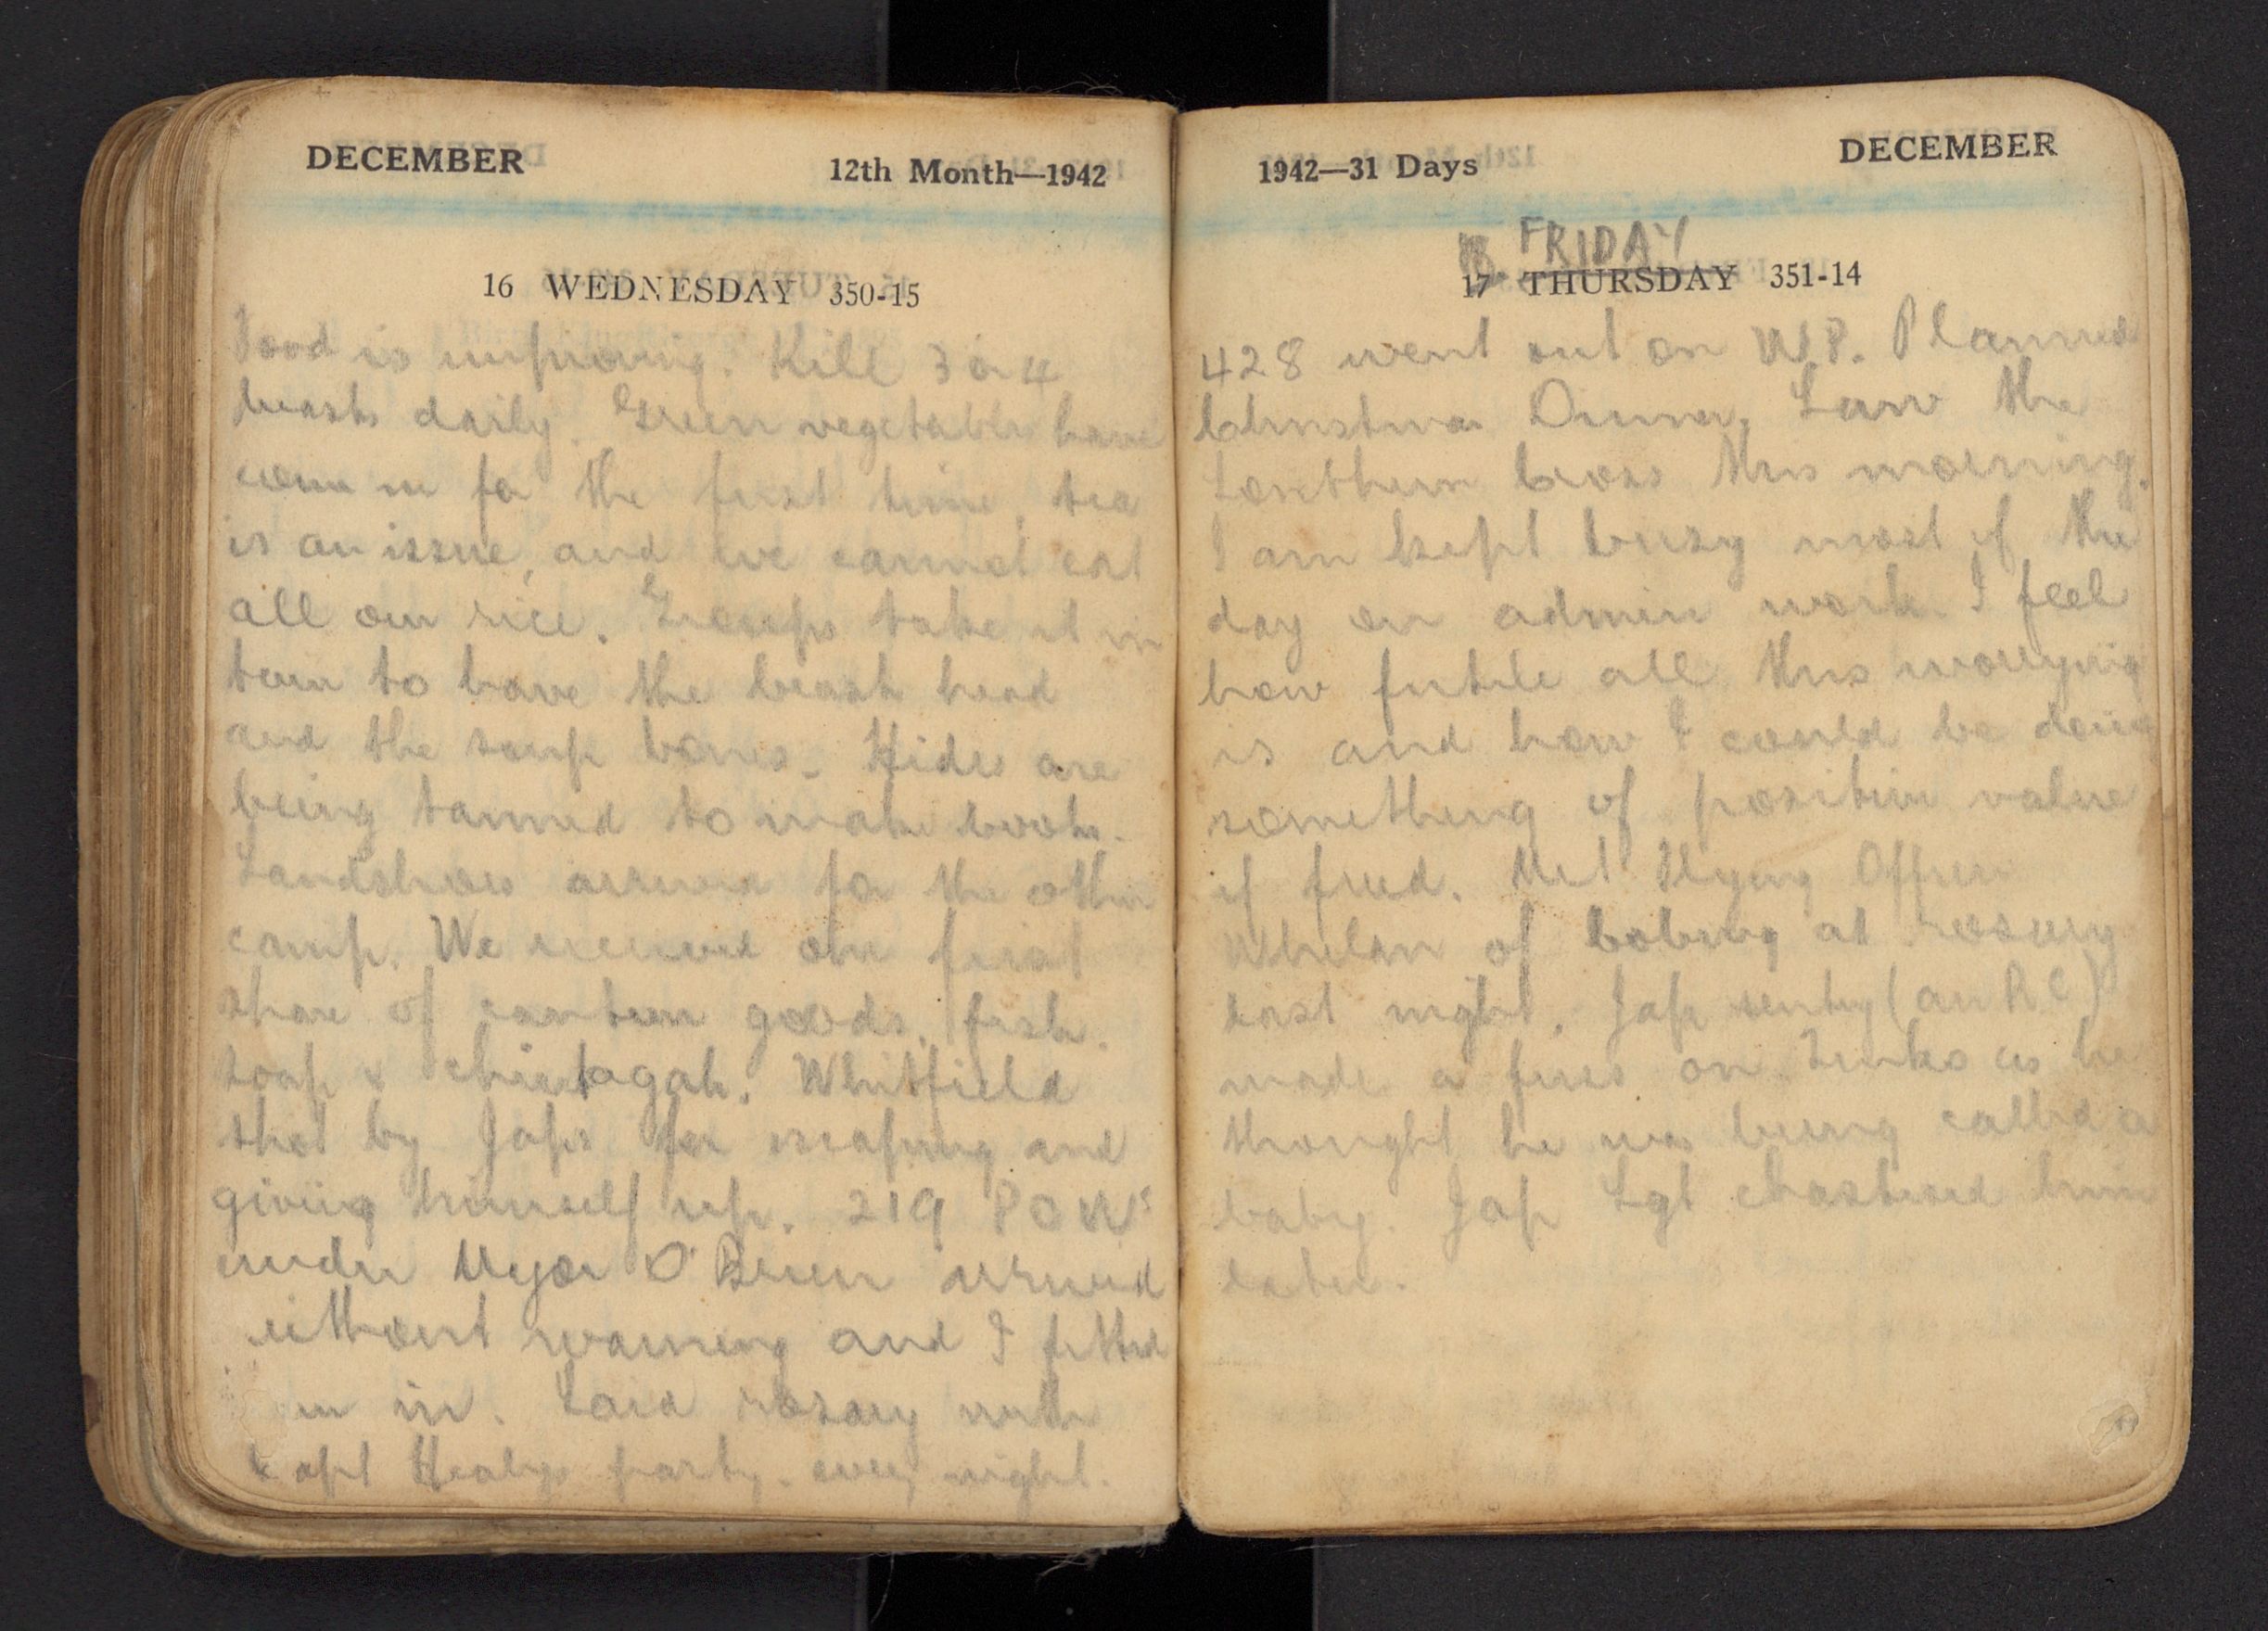 DECEMBER 12th Month—1942
16 WEDNESDAY 350-15
Food is improving. Kill 3 or 4
beasts daily. Green vegetables have
come in for the first time, tea
is an issue, and we cannot eat
all our rice. Groups take it in
turn to have the beasts head
and the soup bones. Hides are
being tanned to make boots.
Sandshoes arrived for the other
camp. We received our first
share of canteen goods, fish.
soap & . Whitfield
shot by Japs for escaping and
giving himself up. 219 POWs
under Major O'Brien arrived
without warning and I fitted
em in. Said rosary with
Capt Healys party. every night.
1942—31 Days DECEMBER
18 FRIDAY
17 THURSDAY 351-14
428 went out on W.P. Planned
Christmas Dinner. Saw the
Southern Cross this morning.
I am kept busy most of the
day on admin work. I feel
how futile all this worrying
is and how I could be doing
something of positive value
if freed. Met Flying Officer
Whelan of Coburg at rosary
last night. Jap sentry (an RC)
made a fuss on as he
thought he was being called a
baby. Jap Sgt chastised him
later.